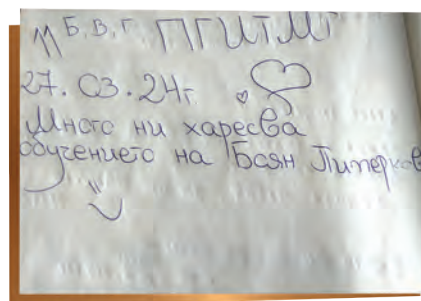 11 Б, В, Г, ПГИТМГ
27.03.24г.
Много ни харесва
обучението на Боян Пиперков